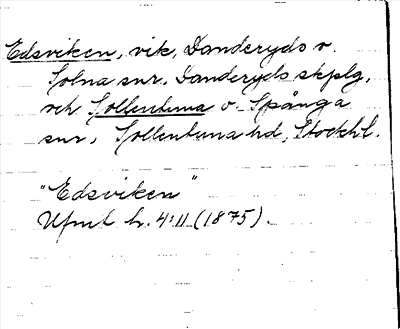 Edsviken, vik, Danderyds o.
Solna snr, Danderyds skplg,
och Sollentuna o. Spånga
snr, Sollentuna hd, Stockh l.
"Edsviken"
Ufml h. 4:11 (1875).